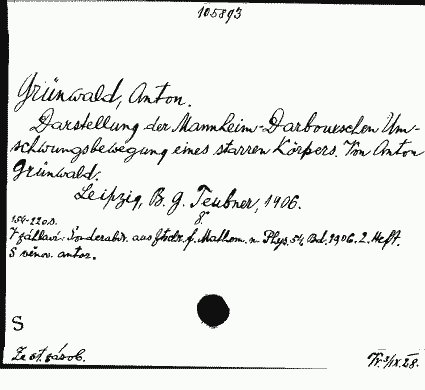 105893
Grünwald, Anton.
Darstellung der Mannheim-Darbouxschen Um-
schwungsbewegung eines starren Körpers. Von Anton
Grünwald.
Leipzig, B. G. Teubner, 1906.
8°
154-220 s.
Sonderabdr. aus f. Mathem. u. Phys. 54. Bd. 1906. 2. Heft.
S věnov. autor.
S
Ze st. zásob.
3/IX.28.